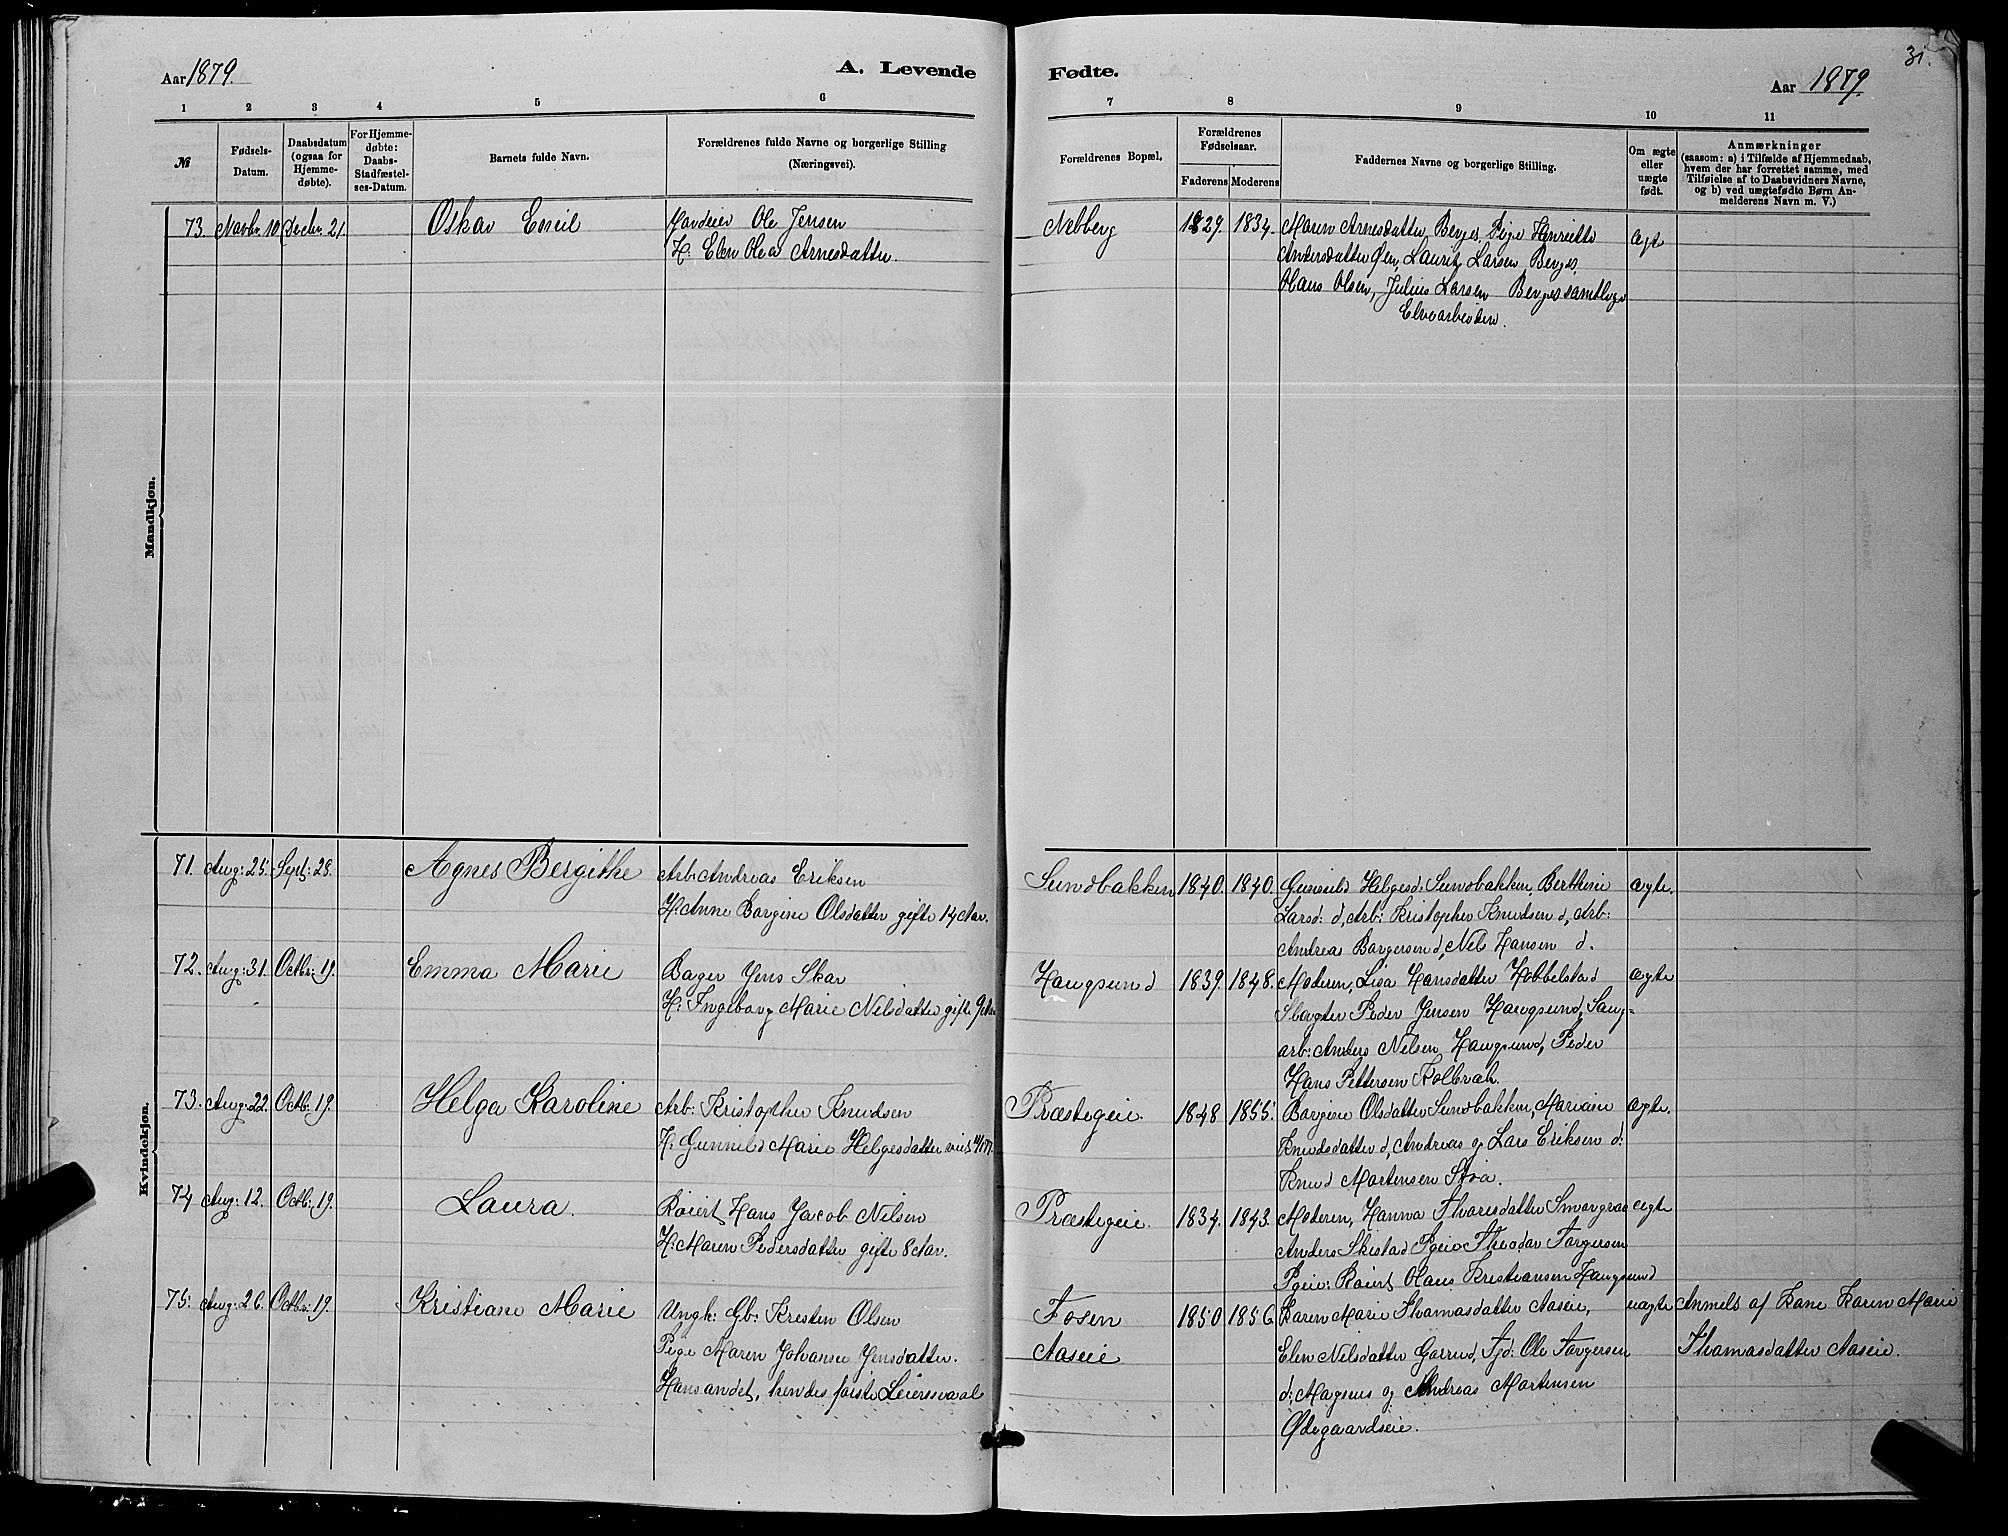 Aar 1879.
A. Levende
Fødte.
31.
Aar 1879.
1 2 3 4 5 6
7 8 9 10 11
№
Fødsels-
Datum.
Daabsdatum
(ogsaa for
Hjemme-
døbte).
For Hjemme-
døbte:
Daabs-
Stadfæstel-
ses-Datum.
Barnets fulde Navn.
Forældrenes fulde Navne og borgerlige Stilling
(Næringsvei).
Forældrenes Bopæl.
Forældrenes
Fødselsaar.
Faderens Moderens
Faddernes Navne og borgerlige Stilling.
Om ægte
eller
uægte
født.
Anmærkninger
(saasom: a) i Tilfælde af Hjemmedaab,
hvem der har forrettet samme, med
Tilføielse af to Daabsvidners Navne,
og b) ved uægtefødte Børn An-
melderens Navn m. V.)
Mandkjøn.
73. Novbr. 10 Decbr. 21
Oskar Emil
Gaardeier Ole Jensen
H. Elen Olea Arnesdatter.
Nebberg
1829. 1834.
Maren Arnesdatter, Berges, Pige Henriette
Andersdatter Øen, Lauritz Larsen Berges,
Hans Olsen, Julius Larsen Berges samtlige
Elvearbeidere.
Ægte
Kvindekjøn.
71. Aug: 25. Sept: 28.
Agnes Bergithe
Arb: Andreas Eriksen
H: Anne Borgine Olsdatter gifte 14 Aar.
Sundbakken
1840. 1840.
Gunnild Helgesd: Sundbakken, Berthine
Larsd: d, Arb: Kristopher Knudsen d, Arb:
Andreas Borgersen d, Nels Hansen d.
ægte.
72. Aug: 31. Octbr: 19.
Emma Marie
Bager Jens Skar
H: Ingeborg Marie Nelsdatter gifte 9 Aar
Haugsund
1839. 1848.
Moderen, Lisa Hansdatter Hobbelstad
Slagter Peder Jensen Haugsund, Saug-
arb: Anders Nelsen Haugsund, Peder
Hans Pettersen Kolbræk.
ægte
73. Aug: 22. Octb: 19.
Helga Karoline
Arb: Kristopher Knudsen
H: Gunnild Marie Helgesdatter viet
Præstegeie.
1848 1855.
Borgine Olsdatter Sundbakken, Mariane
Knudsdatter d, Andreas og Lars Eriksen d:
Knud Mortensen Stoa.
ægte.
74 Aug: 12. Octb: 19.
Laura.
Roiert Hans Jacob Nilsen
H: Maren Pedersdatter gifte 8 Aar.
Præstegeie.
1834. 1843.
Moderen, Hanna Thorisdatter Smørgrav
Anders Skistad Pgeie Theodor Torgersen
Pgeie: Roiert Hans Kristiansen Haugsund
ægte
75. Aug: 26. Octbr: 19.
Kristiane Marie
Ungk: Gb: Kresten Olsen
Pige Maren Johanne Jensdatter.
Hans andet, hendes første Leiersmaal
Fosen
Aaseie
1850 1856.
Karen Marie Thomasdatter Aaseie,
Elen Nilsdatter Gorrud, Ole Torgersen
d: Magnus og Andreas Mortensen
Ødegaardseie.
uægte
Anmels af Kone Karen Marie
Thomasdatter Aaseie.